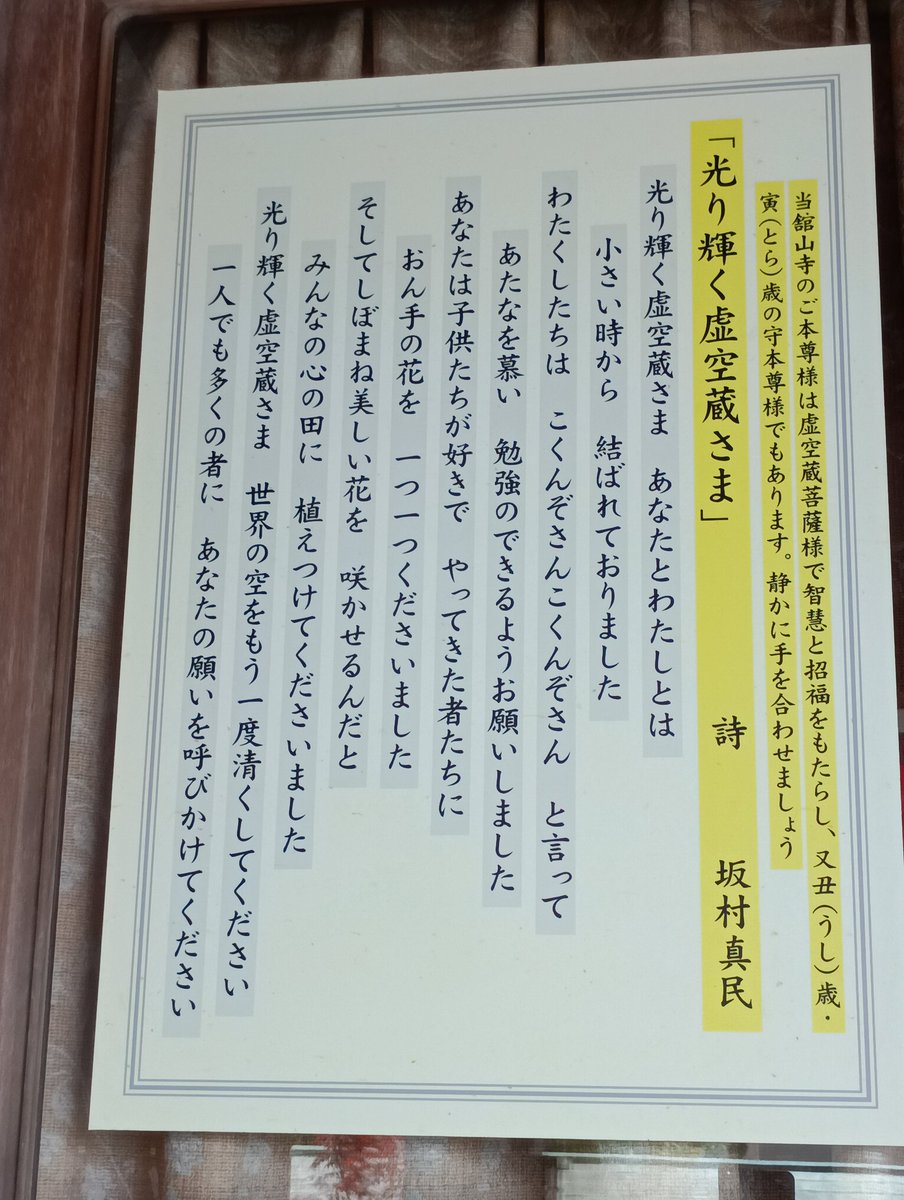 当舘山寺のご本尊様は虚空蔵菩薩様で智慧と招福をもたらし、又丑(うし)歳・
寅(とら)歳の守本尊様でもあります。静かに手を合わせましょう
「光り輝く虚空蔵さま」 詩 坂村真民
光り輝く虚空蔵さま あなたとわたしとは
小さい時から 結ばれておりました
わたくしたちは こくんぞさんこくんぞさん と言って
あたなを慕い 勉強のできるようお願いしました
あなたは子供たちが好きで やってきた者たちに
おん手の花を 一つ一つくださいました
そしてしぼまね美しい花を 咲かせるんだと
みんなの心の田に 植えつけてくださいました
光り輝く虚空蔵さま 世界の空をもう一度清くしてください
一人でも多くの者に あなたの願いを呼びかけてください